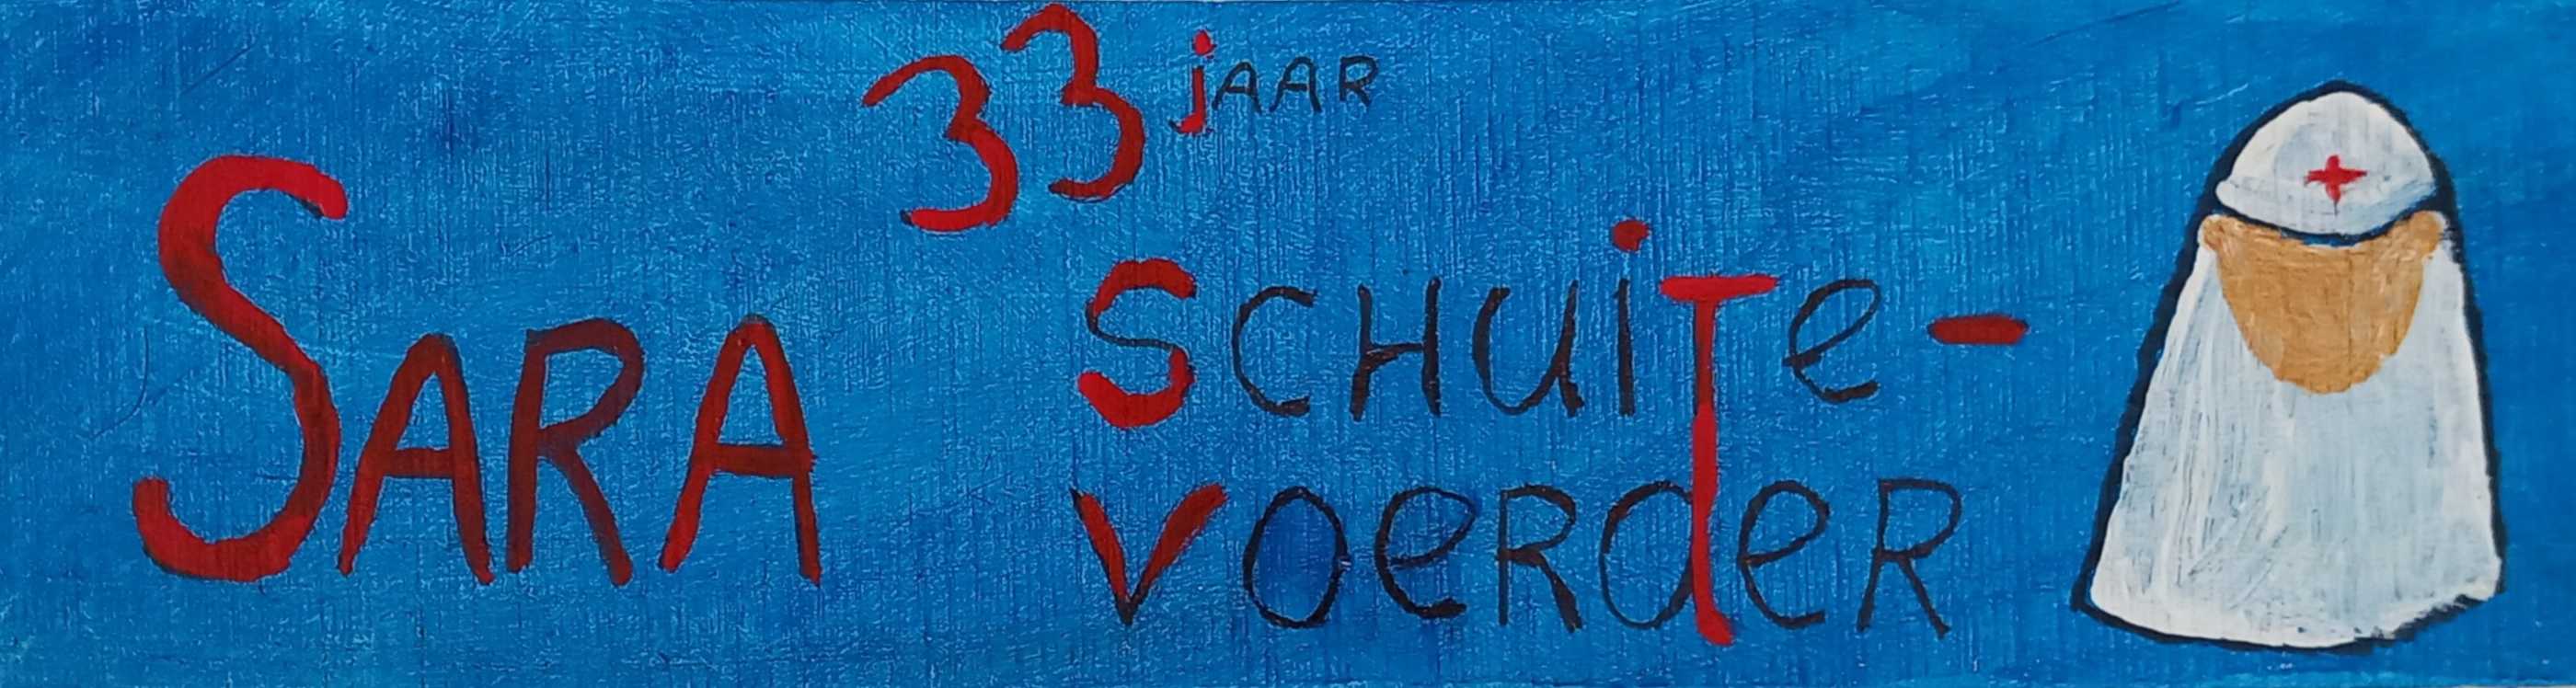 33 jAAR
SARA
SCHUiTe-
VOeRdeR